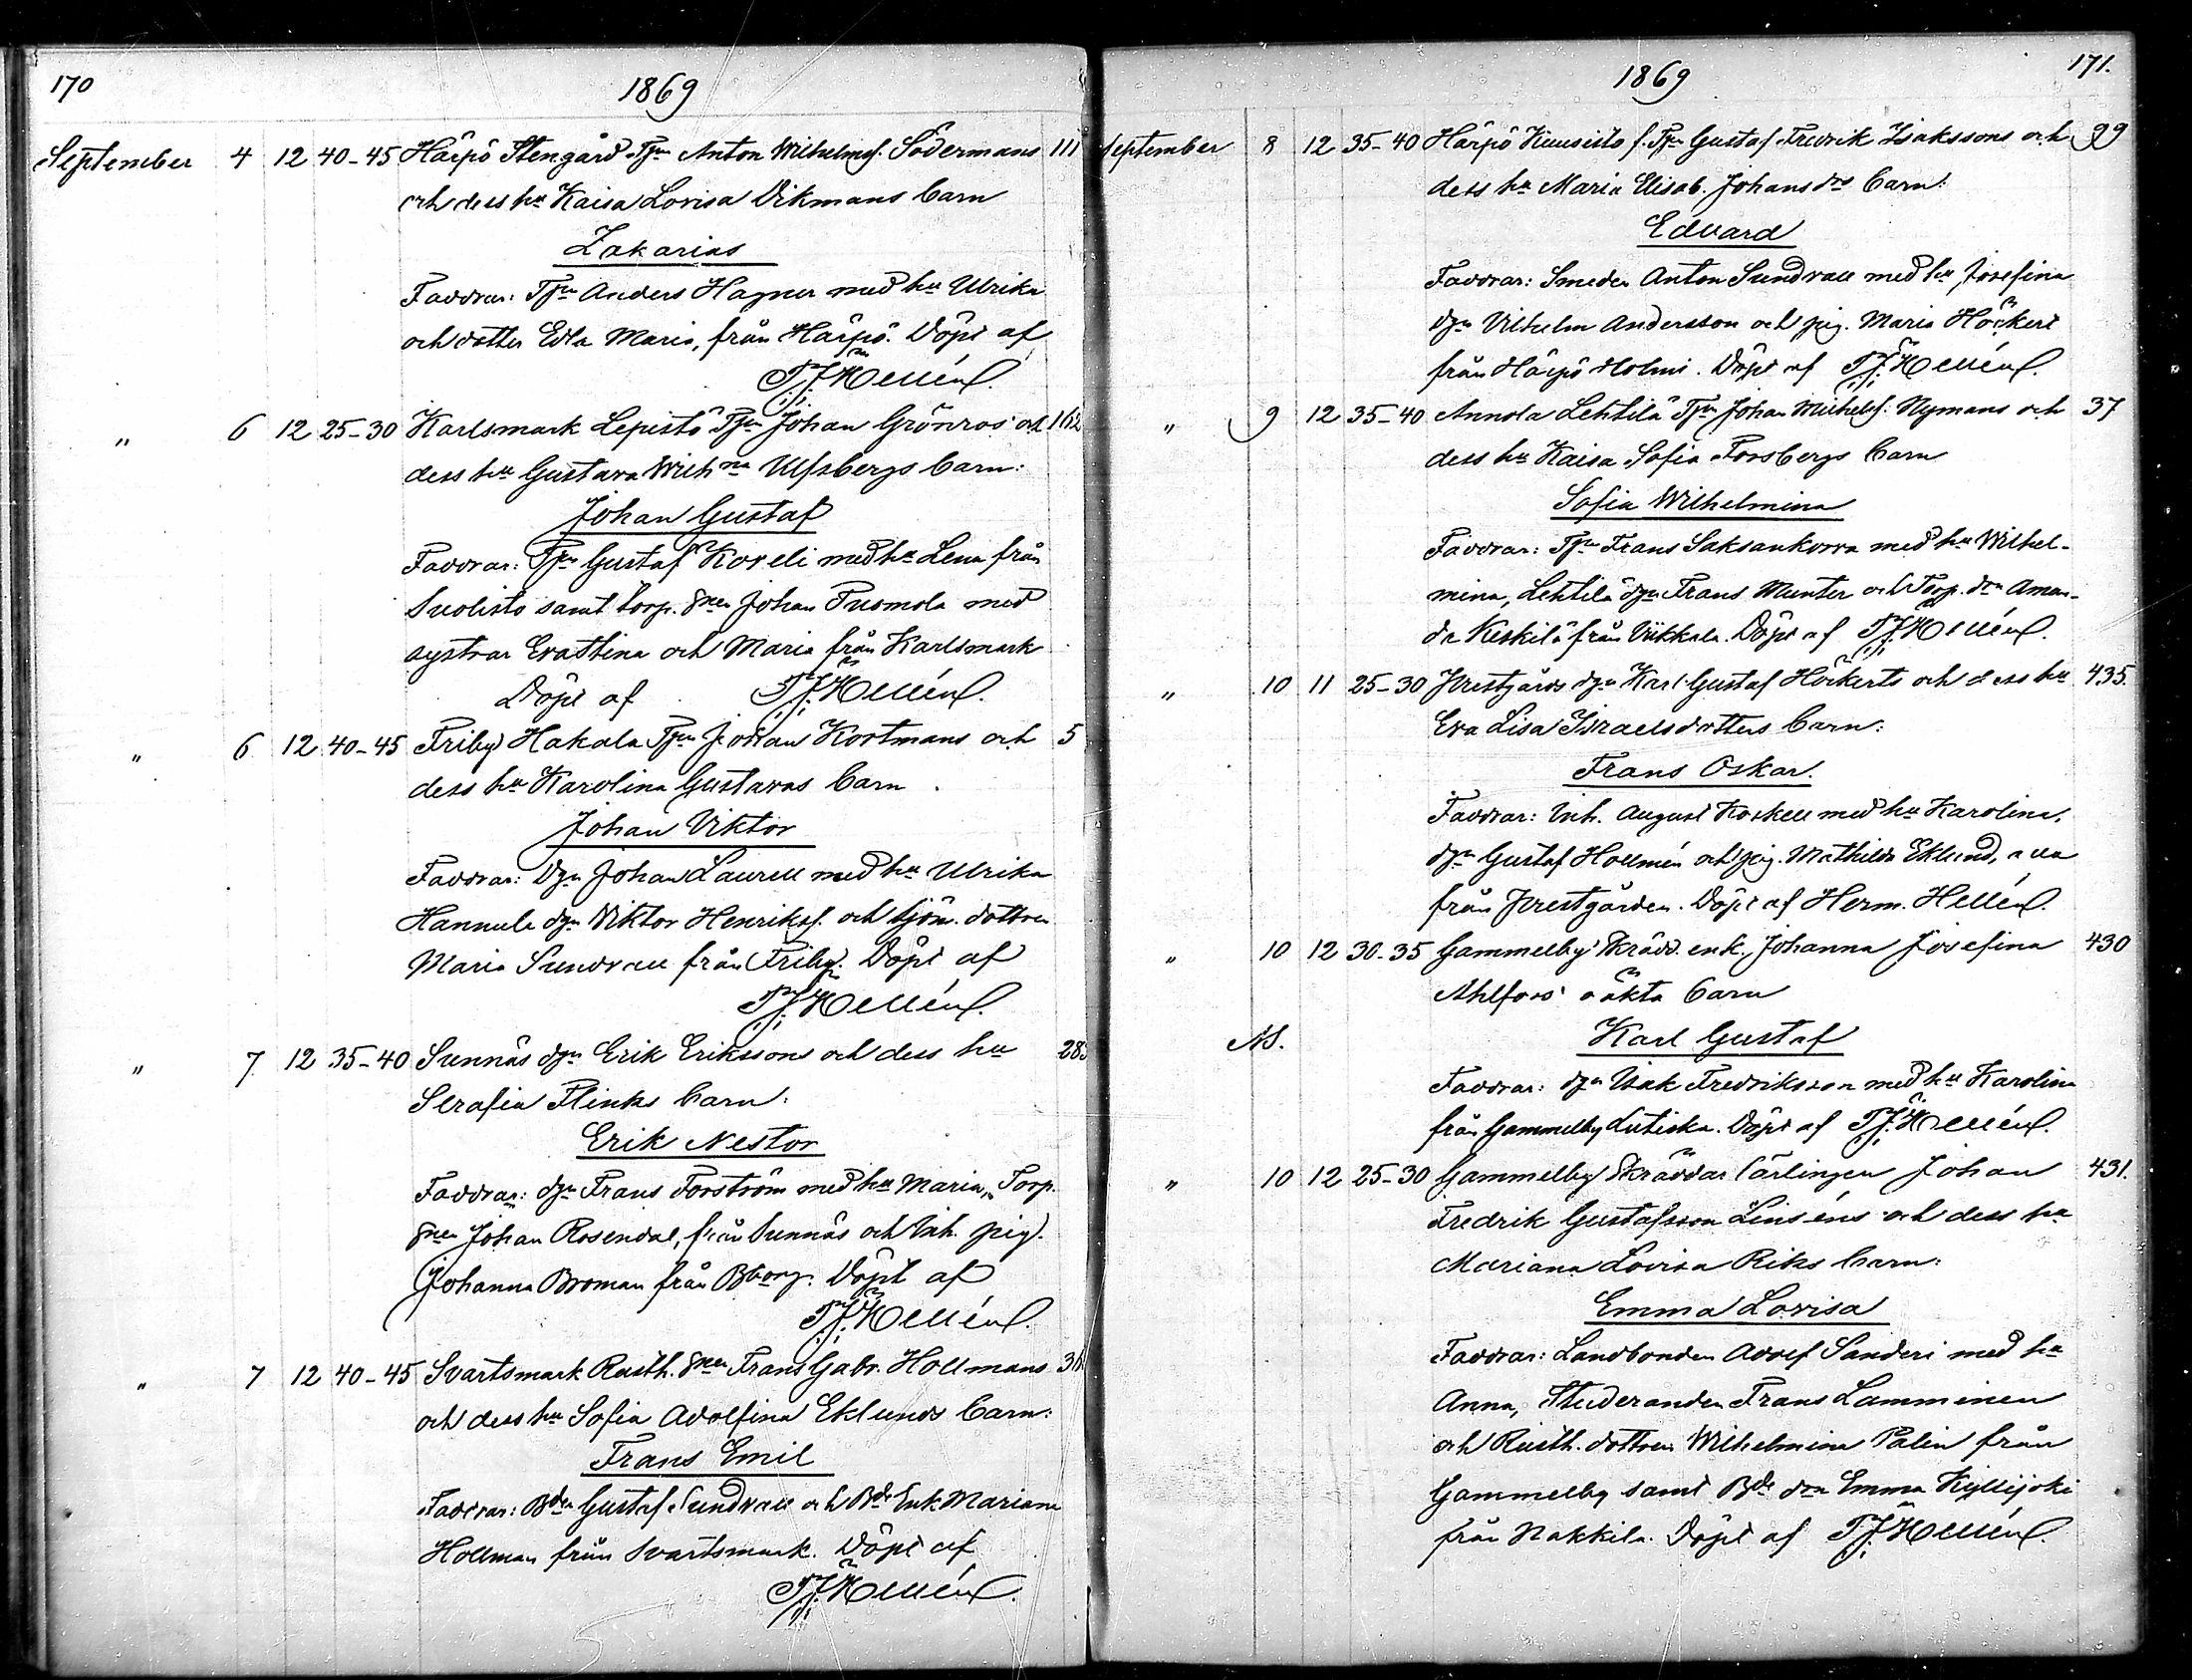 170
1869
September 4 12 40-45 Härpö Stengård Tpn Anton Wilhelmsf. Södermans 111
och dess hu Kaisa Lovisa Vikmans barn
Zakarias
Faddrar: Tpn Anders Hagner med hu Ulrika
och dotter Edla Maria, från Härpö. Döpt af
T.J. Hellén.
" 6 12 25-30 Karlsmark Lepistö Tpn Johan Grönros och 162
dess hu Gustava Wilhna Ulfsbergs barn:
Johan Gustaf
Faddrar: Tpn Gustaf Koveli med hu Lena från
Suolisto samt torp. snen Johan Tuomola med
systrar Eva Stina och Maria från Karlsmark
Döpt af T.J. Hellén.
" 6 12 40-45 Friby Hakala Tpn Johan Kortmans och 5
dess hu Karolina Gustavas barn
Johan Viktor
Faddrar: Dgn Johan Laurell med hu Ulrika
Hannula dgn Viktor Henriksf. och dottren
Maria Sundvall från Friby. Döpt af
T.J. Hellén.
" 7 12 35-40 Sunnäs dgn Erik Erikssons och dess hu 28
Serafia Flinks barn:
Erik Nestor
Faddrar: dgn Frans Forström med hu Maria, Torp.
snen Johan Rosendal, från Sunnäs och Inh. pig.
Johanna Broman från Bborg. Döpt af
T.J. Hellén.
" 7 12 40-45 Svartsmark Rusth. snen Frans Gabr. Hollmans 31
och dess hu Sofia Adolfina Eklunds barn:
Frans Emil
Faddrar: Bden Gustaf Sundvall och Bde Enk. Mariana
Hollman från Svartsmark. Döpt af
T.J. Hellén.
171.
1869
September 8 12 35-40 Härpö Kuusisto f. Tpn Gustaf Fredrik Isakssons och 99
dess hu Maria Elisab. Johansdrs barn:
Edvard
Faddrar: Smeden Anton Sundvall med hu Josefina
dgn Vilhelm Andersson och pig. Maria Höckert
från Härpö Holmi. Döpt af T.J. Hellén.
" 9 12 35-40 Annola Lehtilä Tpn Johan Michelsf. Nymans och 37
dess hu Kaisa Sofia Forsbergs barn
Sofia Wilhelmina
Faddrar: Tpn Frans Saksankorva med hu Wilhel-
mina, Lehtilä dgn Frans Munter och Torp. drn Aman-
da Keskilä från Viikkala. Döpt af T.J. Hellén.
" 10 11 25-30 Prestgårds dgn Karl Gustaf Höckerts och dess hu 435.
Eva Lisa Israelsdotters barn:
Frans Oskar.
Faddrar: Inh. August Koskell med hu Karolina,
dgn Gustaf Hollmén och pig. Mathilda Eklund, alla
från Prestgården. Döpt af Herm. Hellén.
" 10 12 30-35 Gammelby Skrädd. enk. Johanna Josefina 430
Ahlfors' oäkta barn
NB. Karl Gustaf
Faddrar: dgn Isak Fredriksson med hu Karolina
från Gammelby Lutiska. Döpt af T.J. Hellén.
" 10 12 25-30 Gammelby Skräddar lärlingen Johan 431.
Fredrik Gustafsson Linséns och dess hu
Mariana Lovisa Riks barn:
Emma Lovisa
Faddrar: Landbonden Adolf Sanderi med hu
Anna, Studeranden Frans Lamminen
och Rusth. dottren Wilhelmina Palin från
Gammelby samt Bde drn Emma Kyllijoki
från Nakkila. Döpt af T.J. Hellén.